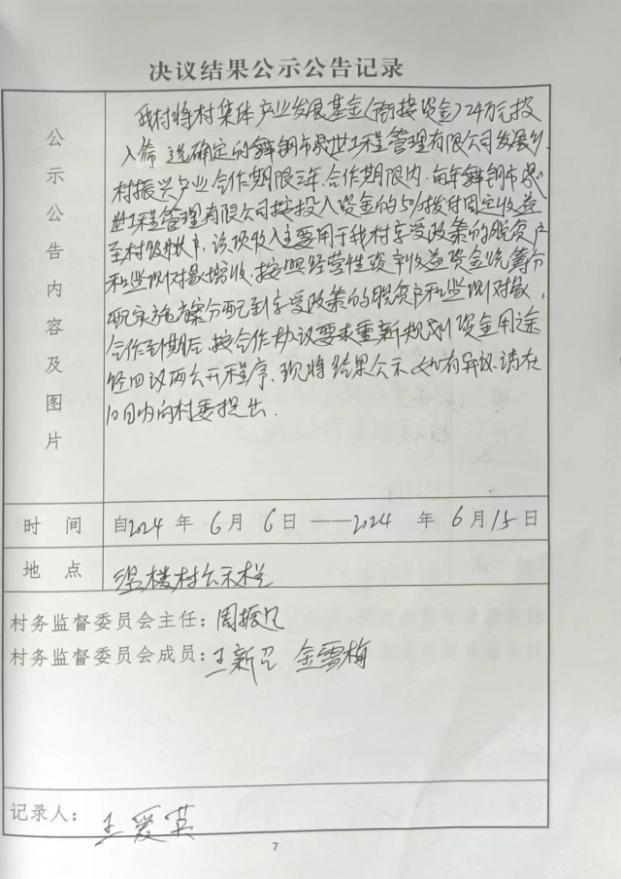 决议结果公示公告记录
公示公告内容及图片
我村将村集体产业发展基金(衔接资金)24万元投
入筛选确定的舞钢市 世工程管理有限公司发展乡
村振兴产业合作期限三年.合作期限内,每年舞钢市
世工程管理有限公司按投入资金的5%拨付固定收益
至村级账户,该项收入主要用于我村享受政策的脱贫户
和监测对象增收.按照经营性资产收益资金统筹分
配实施方案分配到享受政策的脱贫户和监测对象,
合作到期后,按合作协议要求重新规划资金用途
经四议两公开程序.现将结果公示,如有异议.请在
10日内向村委提出.
时 间 自2024 年 6 月 6 日 —— 2024 年 6 月 15 日
地 点 楼村公示栏
村务监督委员会主任:周振
村务监督委员会成员:王新 金雪梅
记录人: 王爱英
7